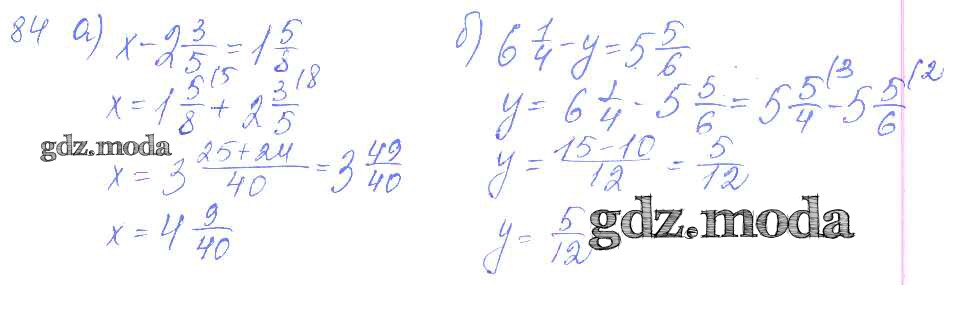 84 а) x - 2 3/5 = 1 5/8
x = 1 5/8 (5 + 2 3/5 (8
x = 3 25+24/40 = 3 49/40
x = 4 9/40
б) 6 1/4 - y = 5 5/6
y = 6 1/4 - 5 5/6 = 5 5/4 (3 - 5 5/6 (2
y = 15-10/12 = 5/12
y = 5/12
gdz.moda
gdz.moda